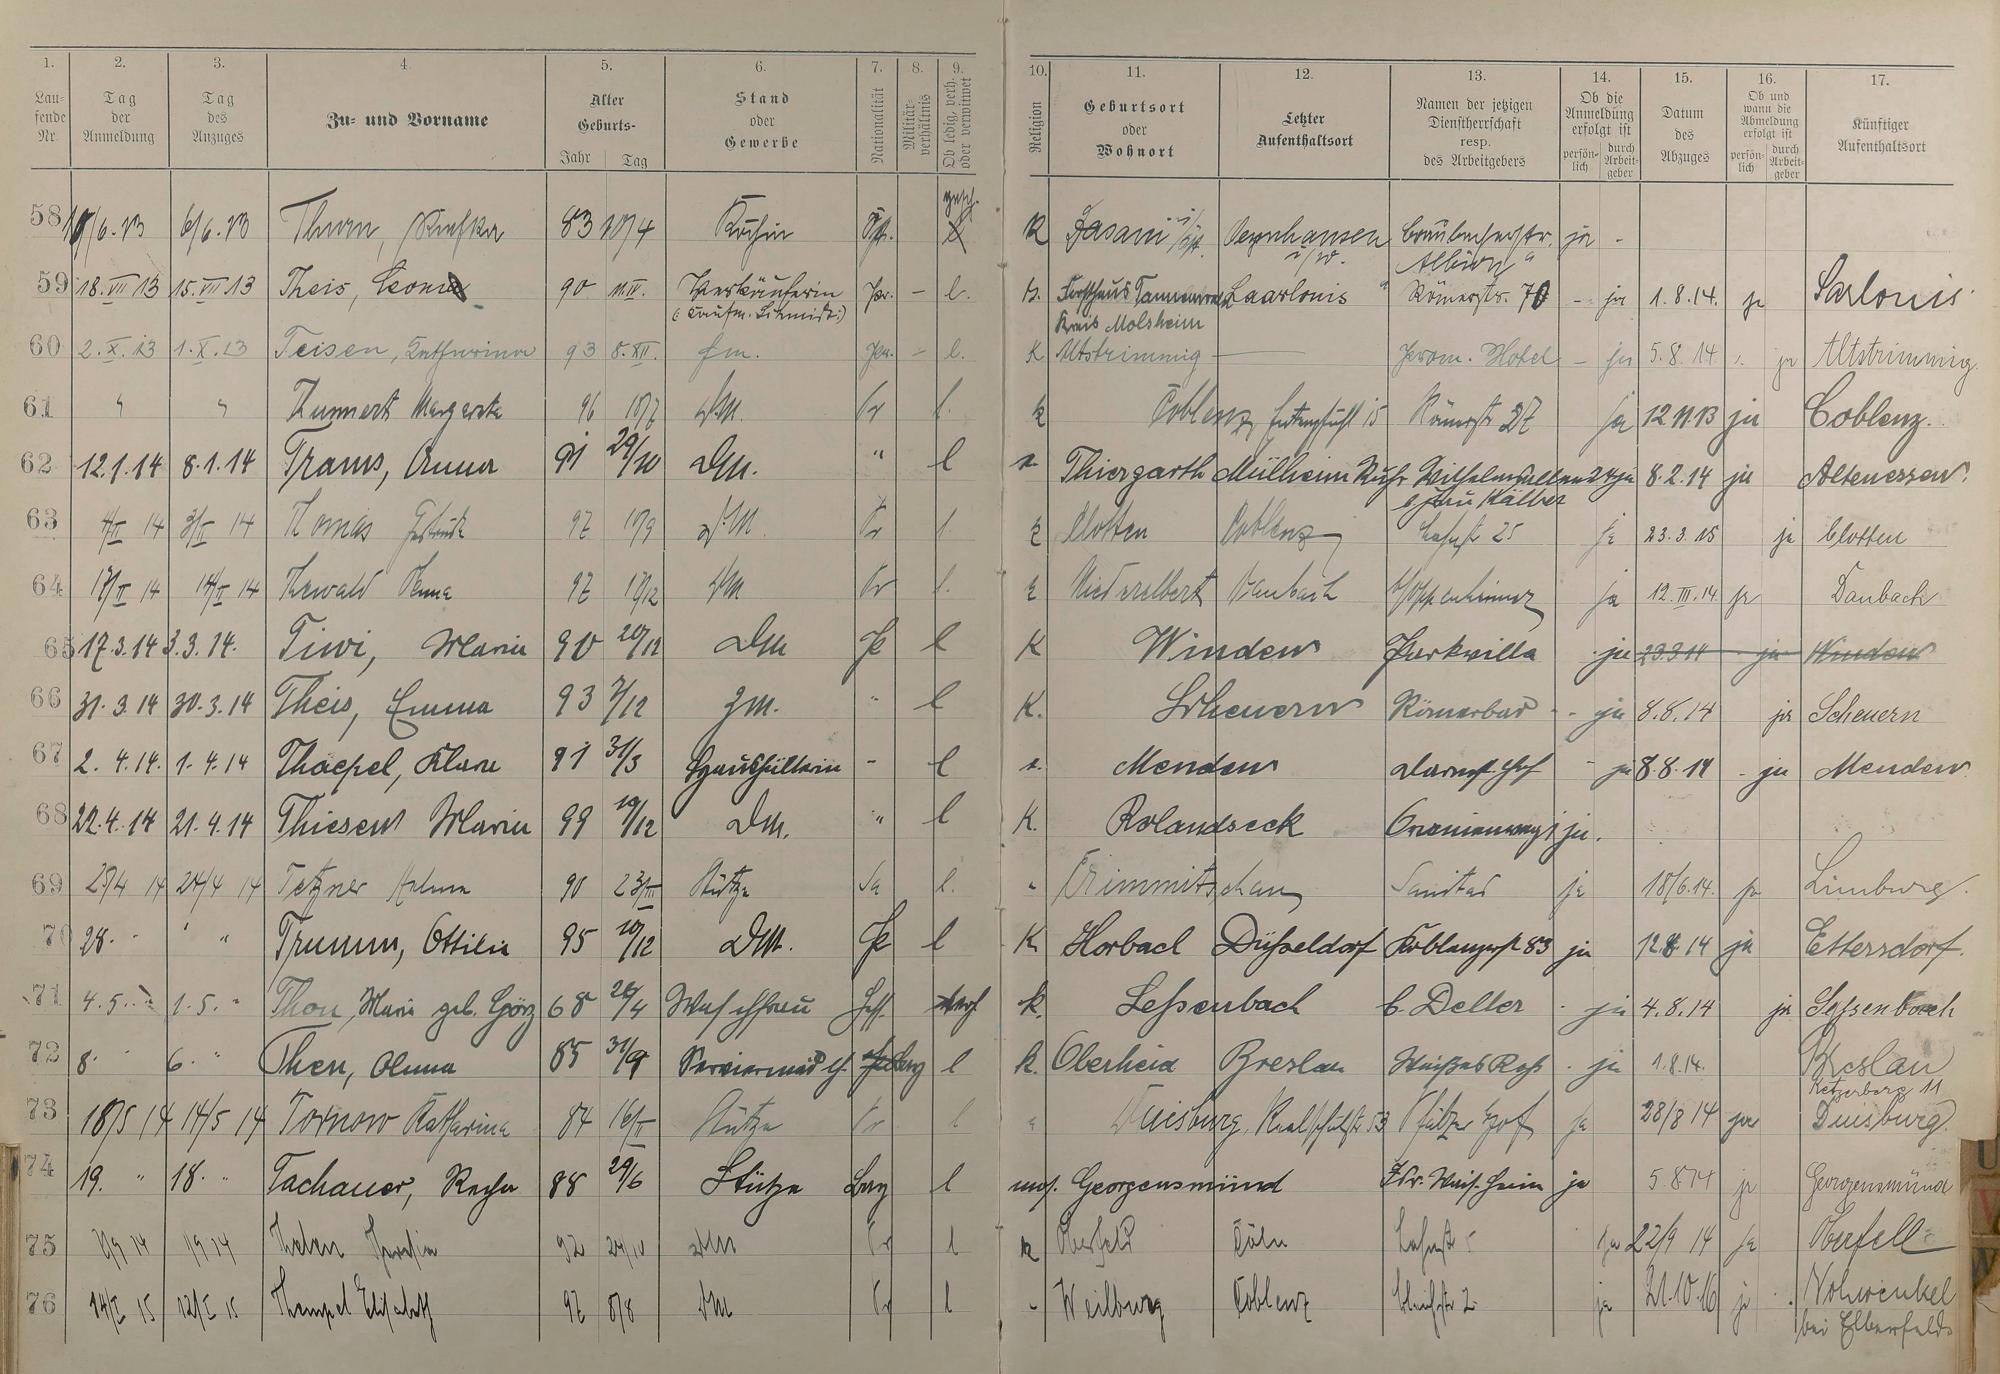 1. 2. 3. 4. 5. 6. 7. 8. 9. 10. 11. 12. 13. 14. 15. 16. 17.
Lau-
fende
Nr.
Tag
der
Anmeldung
Tag
des
Anzuges
Zu- und Vorname
Alter
Geburts-
Jahr Tag
Stand
oder
Gewerbe
Nationalität
Militär-
verhältnis
Ob ledig, verh.
oder verwitwet
Religion
Geburtsort
oder
Wohnort
Letzter
Aufenthaltsort
Namen der jetzigen
Dienstherrschaft
resp.
des Arbeitgebers
Ob die
Anmeldung
erfolgt ist
persön-
lich
durch
Arbeit-
geber
Datum
des
Abzuges
Ob und
wann die
Abmeldung
erfolgt ist
persön-
lich
durch
Arbeit-
geber
Künftiger
Aufenthaltsort
gesch.
58 6/6.13 Thurn, 83 10/4 Köchin K ja -
59 18.VII 13 15.VII 13 Theis, Leonie 90 11.IV. Verkäuferin Pr. - l. Forsthaus Saarlouis Römerstr. 70 - ja 1.8.14. ja Sarlouis
(Kaufm. Schmidt) Kreis Molsheim
60 2.X.13 1.X.13 Teisen, Katharina 93 8.XII. Zm. Pr. - l. K Altstrimmig Prom. Hotel - ja 5.8.14 ja Altstrimmig
61 " " Kummert Margareta 96 10/7 D.M. Pr l. k Coblenz, 15 Römerstr 27 ja 12 11.13 ja Coblenz.
62 12.1.14 8.1.14 Trams, Anna 91 29/10 DM. " l Thiergarth Mülheim Ruhr Wilhelmsallee 24 ja 8.2.14 ja Altenessen.
Frau Kälber
63 4/II 14 3/II 14 Thomas Gertrude 97 10/9 D.M. Pr l. Clotten Coblenz 25 ja 23.3.15 ja Clotten
64 17/II 14 14/II 14 Thewald Anna 97 17/12 DM Pr l. Niederelbert Daubach Oppenheimer ja 12.III.14. ja Daubach
65 17.3.14 3.3.14. Tiwi, Maria 90 20/12 DM Pr l K Winden Parkvilla - ja 23314 - ja Winden
66 31.3.14 30.3.14 Theis, Emma 93 7/12 Zm. " l K. Scheuern Römerbad - ja 8.8.14 ja Scheuern
67 2.4.14. 1.4.14 Thaepel, Klara 91 31/3 - l Menden Darmst. Hof - ja 8.8.14 - ja Menden
68 22.4.14 21.4.14 Thiesen Maria 99 10/12 DM. " l K. Rolandseck Oranienweg ja.
69 27/4 14 24/4 14 Tetzner Helma 90 23/III Stütze Sa l. " Crimmitschau Sanitas ja 18/6.14. ja Limburg.
70 28. " " " Trumm, Ottilie 95 10/12 DM. Pr l K Horbach Düsseldorf Koblenzerstr 83 ja 12.8 14 ja Ettersdorf.
71 4.5. " 1.5. " Thon, Maria geb. Görz 68 20/4 Waschfrau Hess. verh. k. Sessenbach C. Deller - ja 4.8.14 ja Sessenbach
72 8. " 6. " Then, Anna 85 31/9 Serviermädch. l k. Oberheid Breslau Weißes Roß - ja 1.8.14. Breslau
Ketzerberg 11
73 18/5 14 14/5 14 Tornow Katharina 84 16/II Stütze Pr l " Duisburg, Realschulstr 53 Pfälzer Hof ja 28/8 14 ja Duisburg.
74 19. " 18. " Tachauer, Recha 88 29/6 Stütze Bay l mos. Georgensmünd Fdr. Weißheim ja 5 8 14 ja Georgensmünd
75 2/9 14 1/9 14 Theben Theresia 92 24/10 DM Pr l k Oberfeld Cöln ja 22/9 14 ja Oberfell
76 14/I 15 12/I 15 Thempel Elisabeth 97 8/8 DM Pr l " Weilburg Coblenz 2 ja 21.10.16 ja Vohwinkel
bei Elberfeld